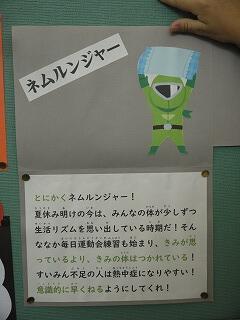 ネムルンジャー
とにかくネムルンジャー！
夏休み明けの今は、みんなの体が少しずつ
生活リズムを思い出している時期だ！そん
ななか毎日運動会練習も始まり、きみが思
っているより、きみの体はつかれている！
すいみん不足の人は熱中症になりやすい！
意識的に早くねるようにしてくれ！